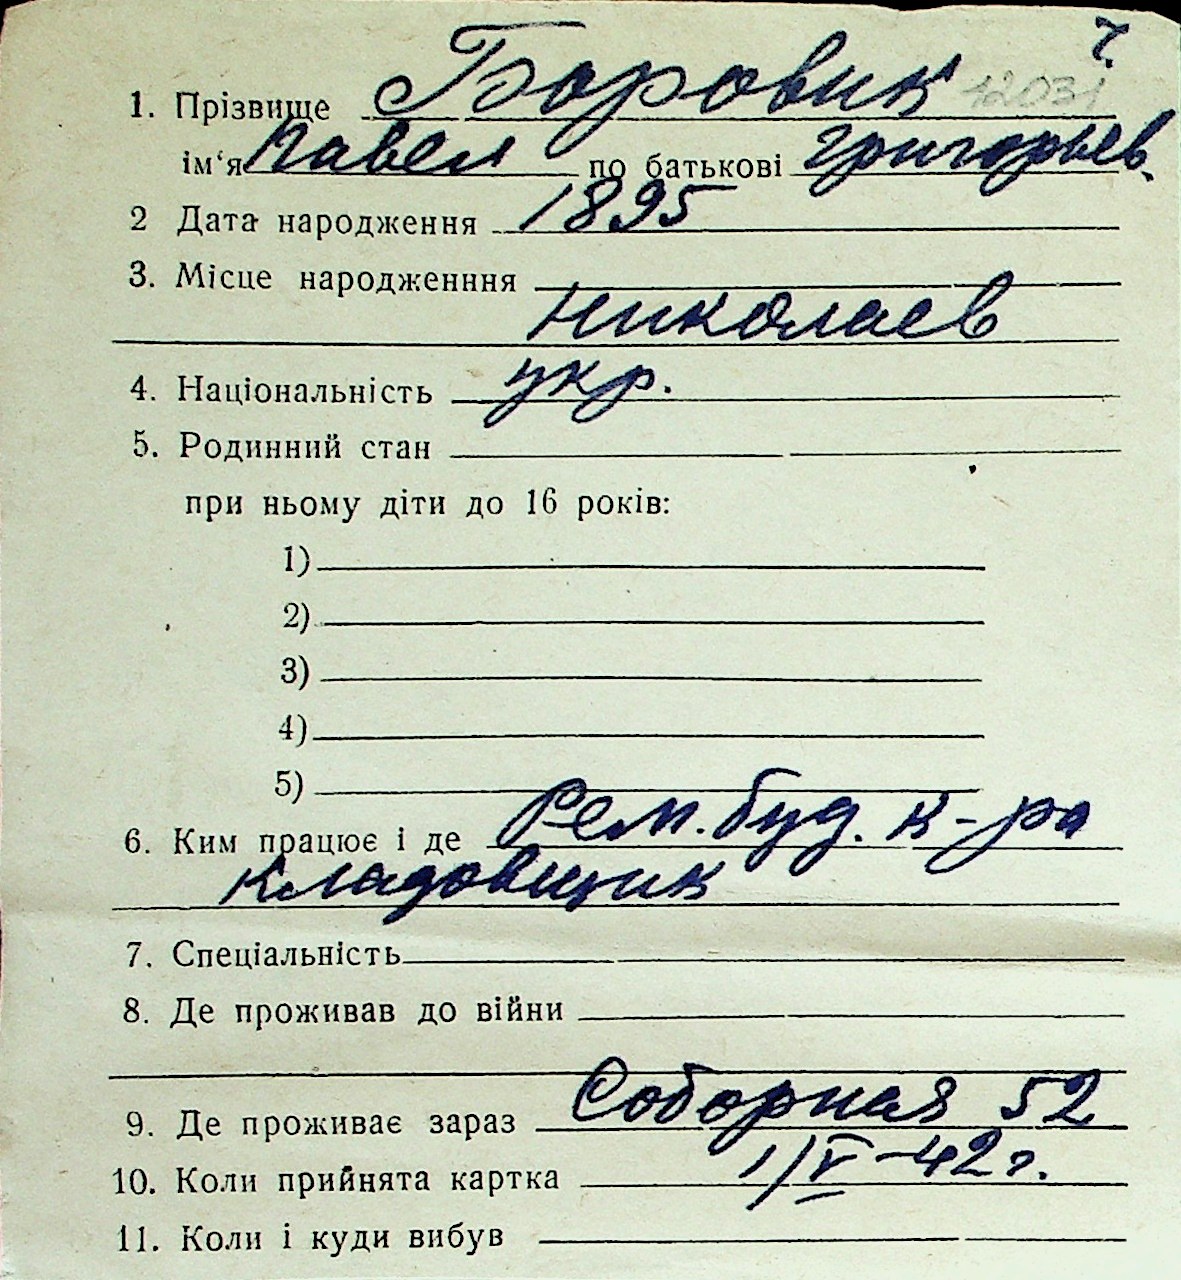 ч.
1. Прізвище Боровик 12031
ім‘я Павел по батькові Григорьев.
2 Дата народження 1895
3. Місце народженння
Николаев
4. Національність укр.
5. Родинний стан
при ньому діти до 16 років:
1)
2)
3)
4)
5)
6. Ким працює і де Рем. буд. к-ра
кладовщик
7. Спеціальність
8. Де проживав до війни
9. Де проживає зараз Соборная 52
10. Коли прийнята картка 1/V-42 г.
11. Коли і куди вибув